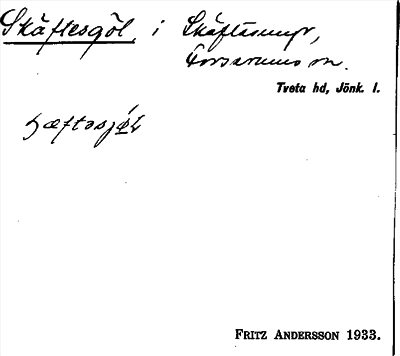 Skäftesgöl, i Skäftamyr,
Forserums sn.
Tveta hd, Jönk. l.
FRITZ ANDERSSON 1933.